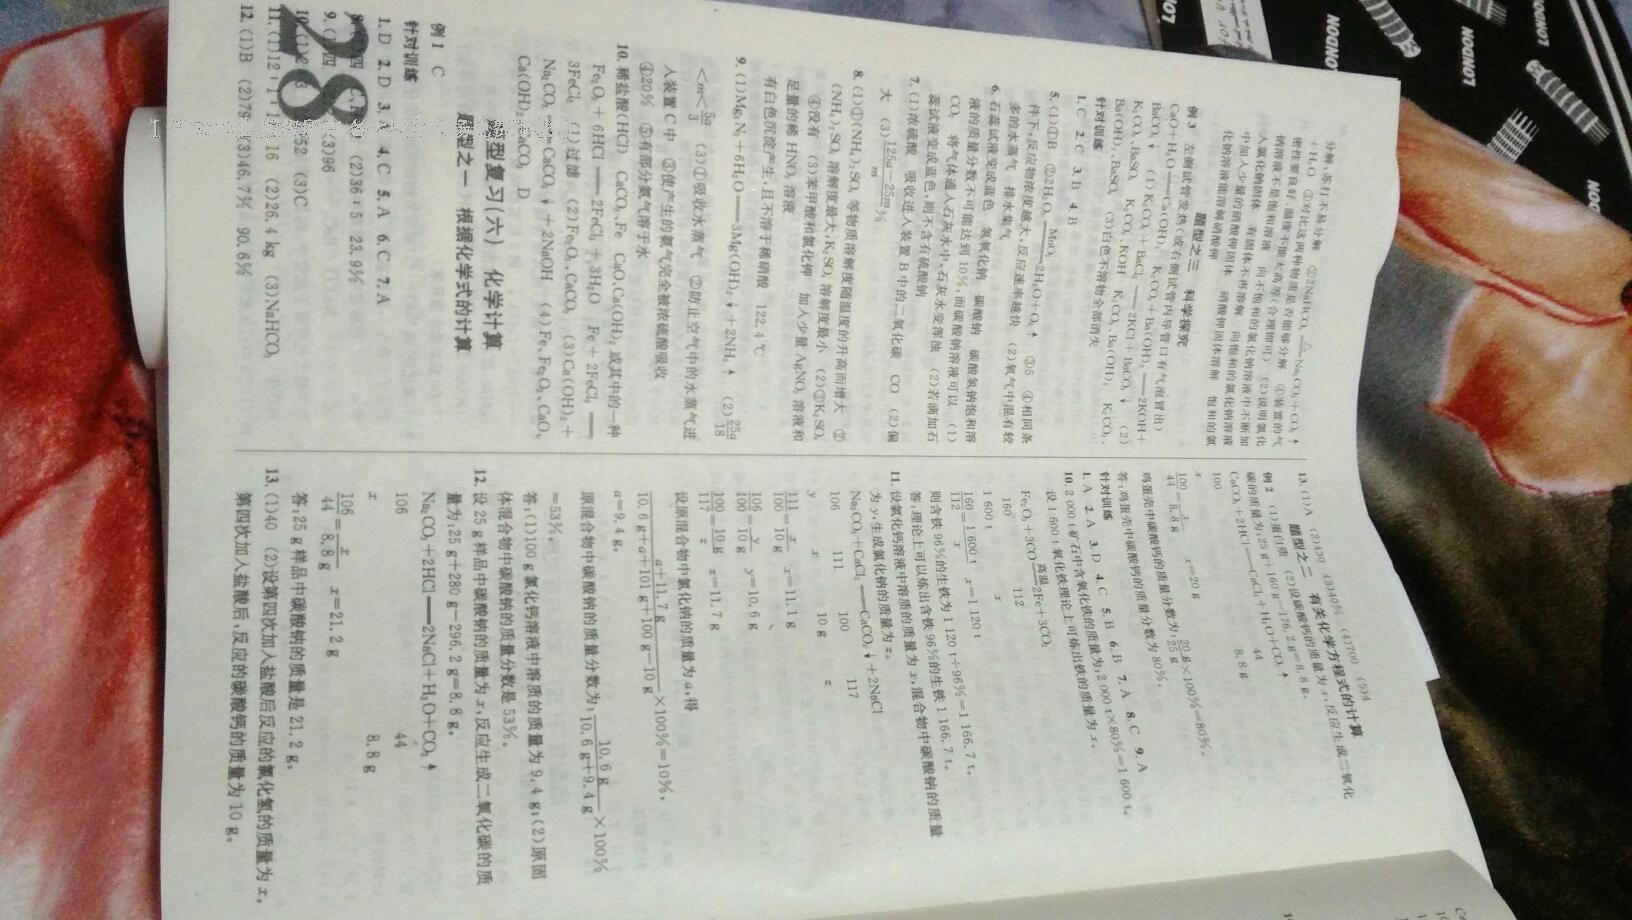 分解,苏打不易分解 ②2NaHCO₃ =△= Na₂CO₃+CO₂↑
+H₂O ③对比这两种物质是否能够分解 ④装置的气
密性要良好 温度不能太高等(合理即可) (2)说明氯化
钠溶液不是饱和溶液 向不饱和的氯化钠溶液中不断加
入氯化钠固体 有固体不再溶解 向饱和的氯化钠溶液
中加入少量的硝酸钾固体 硝酸钾固体溶解 饱和的氯
化钠溶液能溶解硝酸钾
题型之三 科学探究
例3 左侧试管发热(或右侧试管内导管口有气泡冒出)
CaO+H₂O══Ca(OH)₂ K₂CO₃+Ba(OH)₂══2KOH+
BaCO₃↓ (1)K₂CO₃+BaCl₂══2KCl+BaCO₃↓ (2)
K₂CO₃、BaSO₄ K₂CO₃、KOH K₂CO₃、Ba(OH)₂ K₂CO₃、
Ba(OH)₂、BaSO₄ (3)白色不溶物全部消失
针对训练
1.C 2.C 3.B 4.B
5.(1)①B ②2H₂O₂ =MnO₂= 2H₂O+O₂↑ ③5 ④相同条
件下,反应物浓度越大,反应速率越快 (2)氧气中混有较
多的水蒸气 排水集气
6.石蕊试液变成蓝色 氢氧化钠 碳酸钠 碳酸氢钠饱和溶
液的质量分数不可能达到10%,而碳酸钠溶液可以 (1)
CO₂ 将气体通入石灰水中,石灰水变浑浊 (2)若滴加石
蕊试液变成蓝色,则不含有硫酸钠
7.(1)浓硫酸 吸收进入装置B中的二氧化碳 CO (2)偏
大 (3)(125a−25m)/m %
8.(1)①(NH₄)₂SO₄等物质溶解度随温度的升高而增大 ②
(NH₄)₂SO₄溶解度最大,K₂SO₄溶解度最小 (2)③K₂SO₄
④没有 (3)苯甲酸和氯化钾 加入少量AgNO₃溶液和
足量的稀HNO₃溶液
有白色沉淀产生,且不溶于稀硝酸 122.4℃
9.(1)Mg₃N₂+6H₂O══3Mg(OH)₂↓+2NH₃↑ (2)25a/18
<m<5a/3 (3)①吸收水蒸气 ②防止空气中的水蒸气进
入装置C中 ③使产生的氨气完全被浓硫酸吸收
④20% ⑤有部分氨气溶于水
10.稀盐酸(HCl) CaCO₃、Fe CaO、Ca(OH)₂或其中的一种
Fe₂O₃+6HCl══2FeCl₃+3H₂O Fe+2FeCl₃══
3FeCl₂ (1)过滤 (2)Fe₂O₃、CaCO₃ (3)Ca(OH)₂+
Na₂CO₃══CaCO₃↓+2NaOH (4)Fe、Fe₂O₃、CaO、
Ca(OH)₂、CaCO₃ D
题型复习(六) 化学计算
题型之一 根据化学式的计算
例1 C
针对训练
1.D 2.D 3.A 4.C 5.A 6.C 7.A
(2)36∶5 23.9%
9. 四 (3)96
252 (3)C
11.(1)12∶1∶16 (2)26.4 kg (3)NaHCO₃
12.(1)B (2)79 (3)46.7% 90.6%
28
13.(1)A (2)430 (3)40% (4)700 (5)4
题型之二 有关化学方程式的计算
例2 (1)蛋白质 (2)设碳酸钙的质量为x,反应生成二氧化
碳的质量为:25 g+160 g−176.2 g=8.8 g。
CaCO₃+2HCl══CaCl₂+H₂O+CO₂↑
100 44
x 8.8 g
100/44=x/8.8 g x=20 g
鸡蛋壳中碳酸钙的质量分数为:20 g/25 g×100%=80%。
答:鸡蛋壳中碳酸钙的质量分数为80%。
针对训练
1.A 2.A 3.D 4.C 5.B 6.B 7.A 8.C 9.A
10.2 000 t矿石中含氧化铁的质量为:2 000 t×80%=1 600 t。
设1 600 t氧化铁理论上可炼出铁的质量为x。
Fe₂O₃+3CO =高温= 2Fe+3CO₂
160 112
1 600 t x
160/112=1 600 t/x x=1 120 t
则含铁96%的生铁为1 120 t÷96%=1 166.7 t。
答:理论上可以炼出含铁96%的生铁1 166.7 t。
11.设氯化钙溶液中溶质的质量为x,混合物中碳酸钠的质量
为y,生成氯化钠的质量为z。
Na₂CO₃+CaCl₂══CaCO₃↓+2NaCl
106 111 100 117
y x 10 g z
111/100=x/10 g x=11.1 g
106/100=y/10 g y=10.6 g
100/117=10 g/z z=11.7 g
设原混合物中氯化钠的质量为a,得
(a+11.7 g)/(10.6 g+a+101 g+100 g−10 g)×100%=10%,
a=9.4 g。
原混合物中碳酸钠的质量分数为:10.6 g/(10.6 g+9.4 g)×100%
=53%。
答:(1)100 g氯化钙溶液中溶质的质量为9.4 g;(2)原固
体混合物中碳酸钠的质量分数是53%。
12.设25 g样品中碳酸钠的质量为x,反应生成二氧化碳的质
量为:25 g+280 g−296.2 g=8.8 g。
Na₂CO₃+2HCl══2NaCl+H₂O+CO₂↑
106 44
x 8.8 g
106/44=x/8.8 g x=21.2 g
答:25 g样品中碳酸钠的质量是21.2 g。
13.(1)40 (2)设第四次加入盐酸后反应的氯化氢的质量为x。
第四次加入盐酸后,反应的碳酸钙的质量为10 g。
LONDON
LONDON
LONDON
LONDON